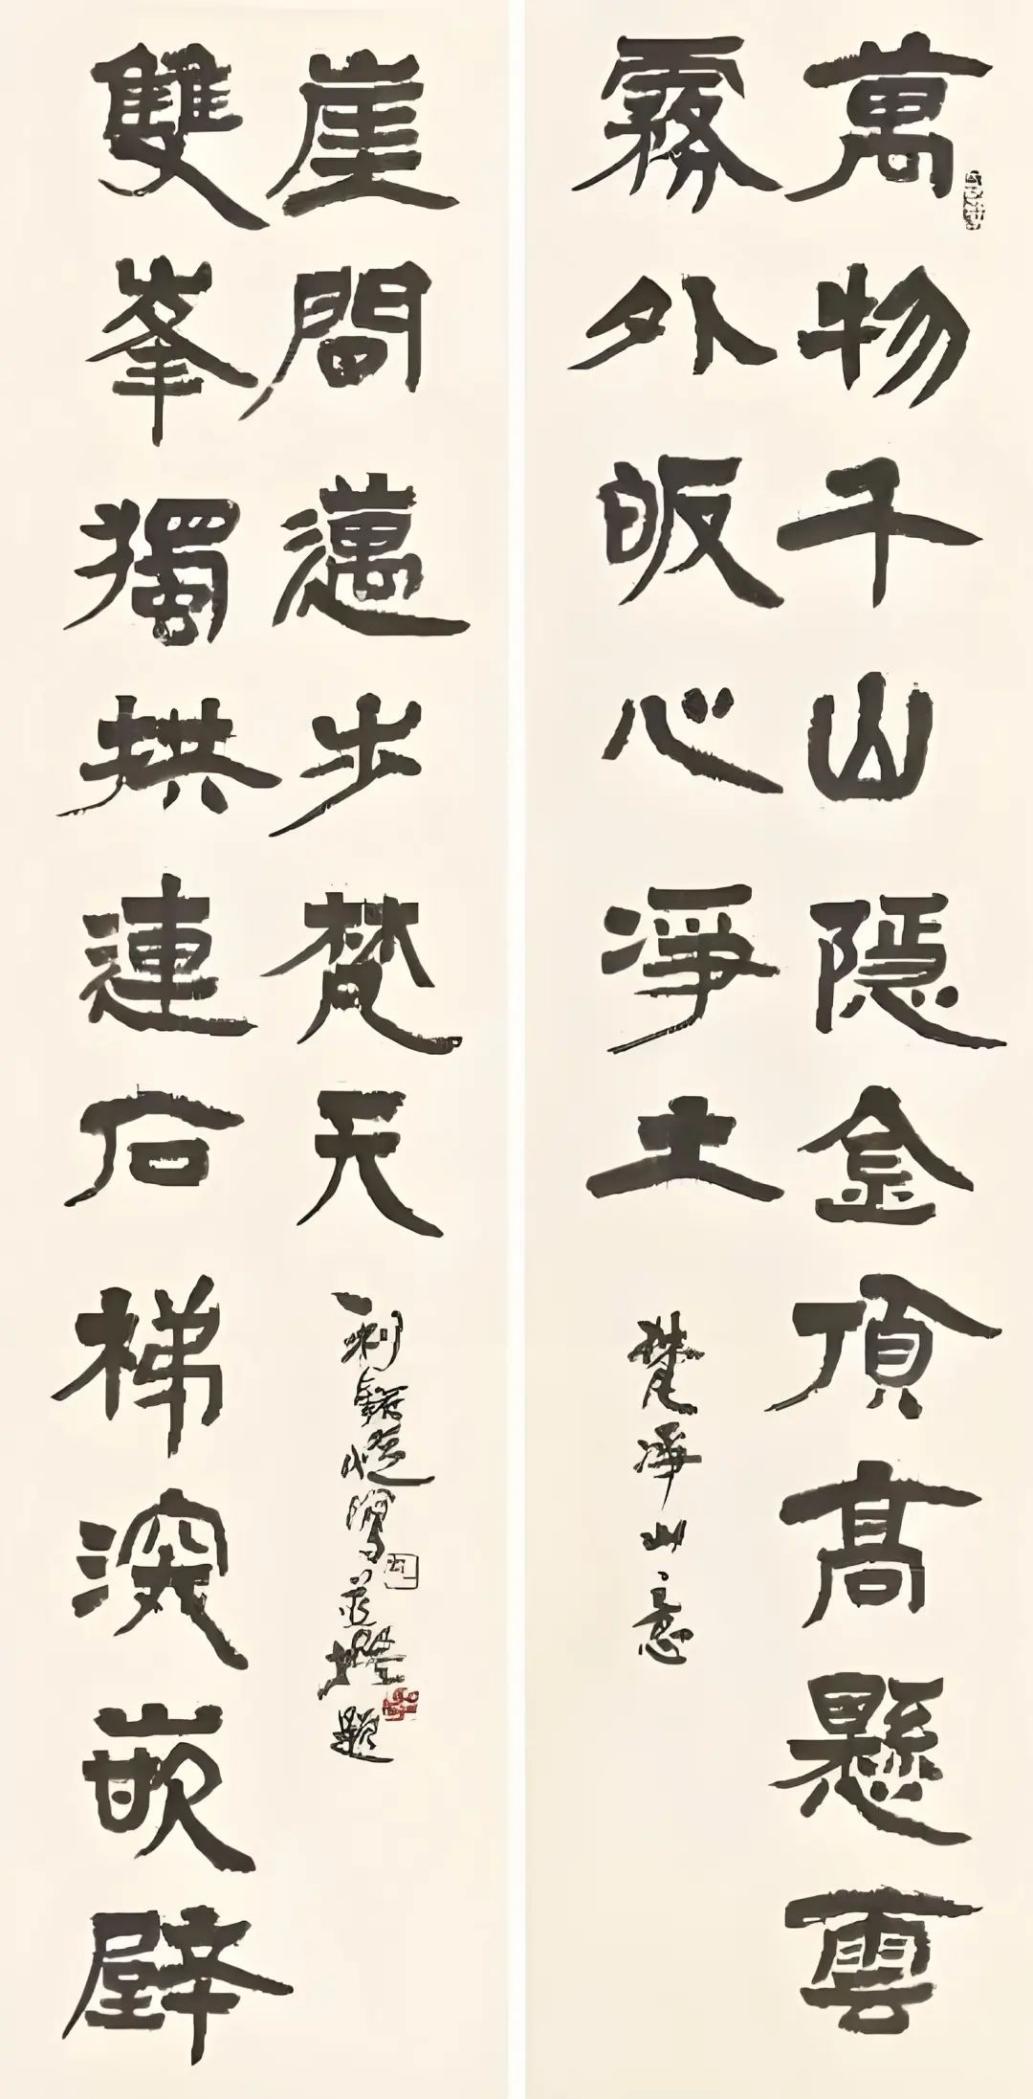 萬物千山隱金頂髙懸雲
霧外皈心凈土
梵凈山意
雙峯獨拱連石梯深嵌壁
崖間邁步梵天
利 寫並 題